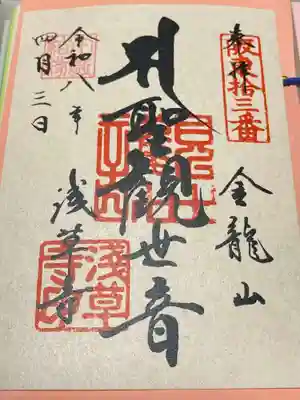 奉拝
坂東拾三番
金龍山
聖観世音
浅草寺
令和八年
四月三日